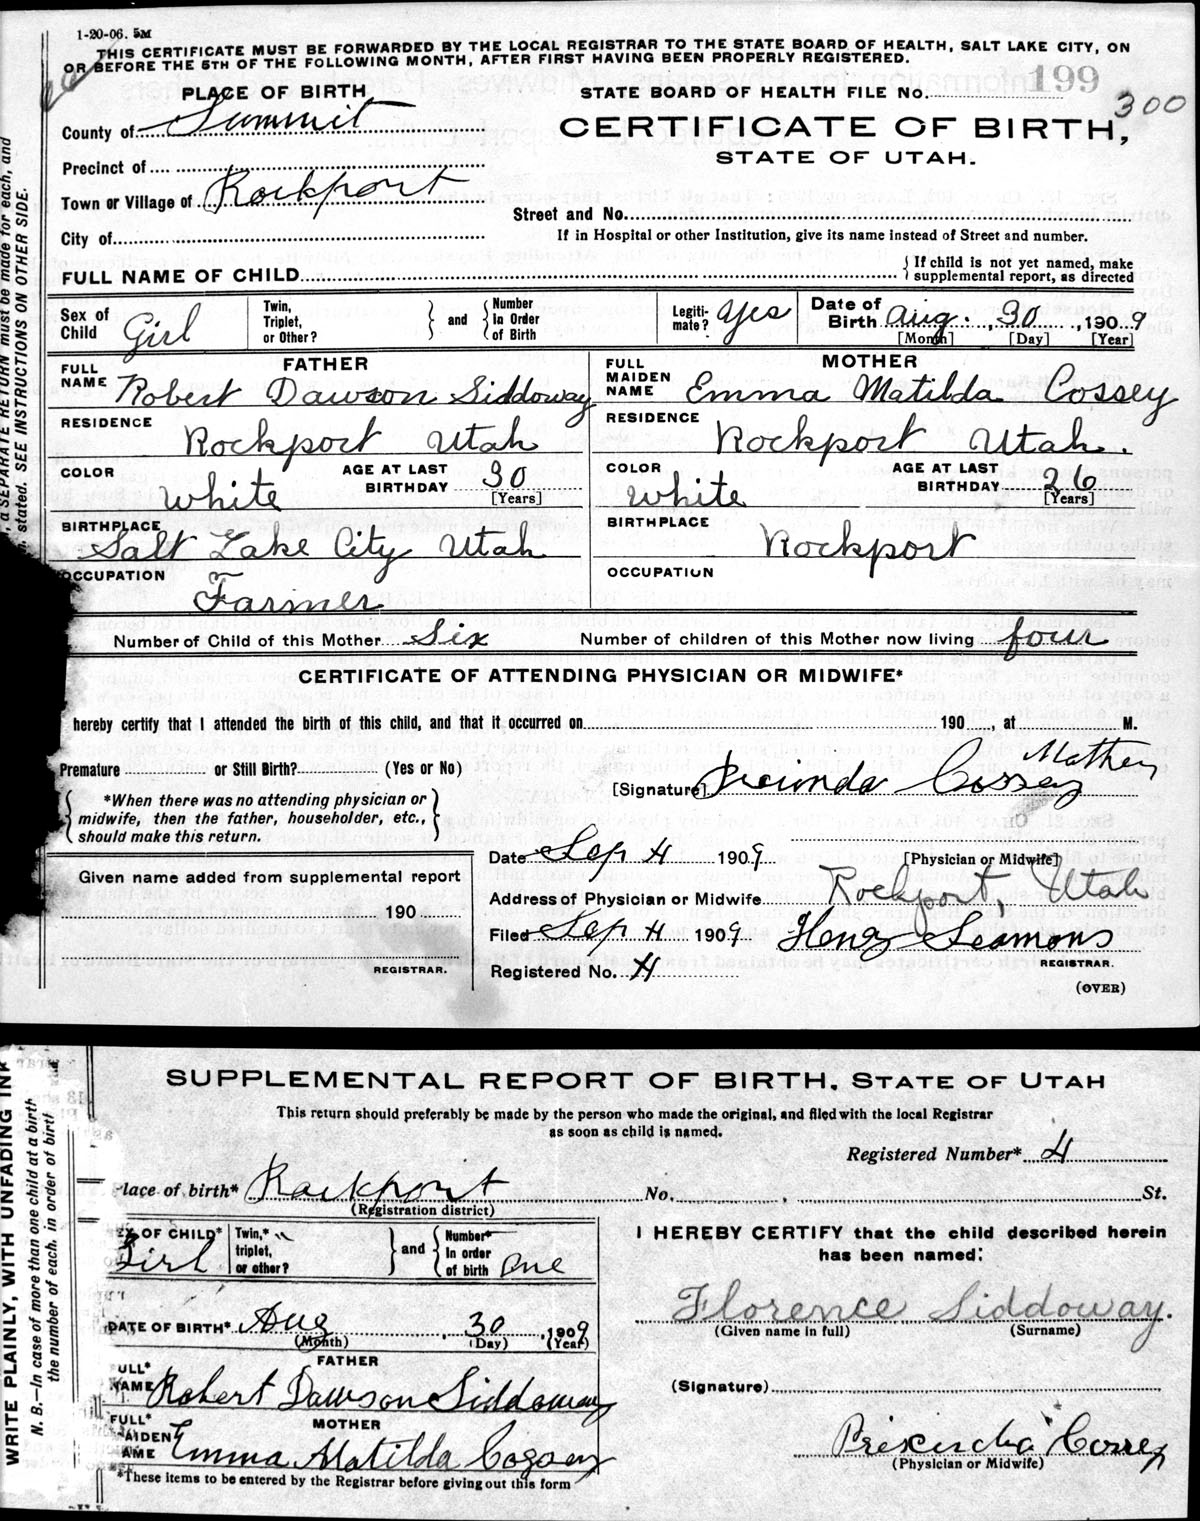 1-20-06. 5M
THIS CERTIFICATE MUST BE FORWARDED BY THE LOCAL REGISTRAR TO THE STATE BOARD OF HEALTH, SALT LAKE CITY, ON
OR BEFORE THE 5TH OF THE FOLLOWING MONTH, AFTER FIRST HAVING BEEN PROPERLY REGISTERED.
PLACE OF BIRTH
STATE BOARD OF HEALTH FILE No. 199
300
County of Summit
CERTIFICATE OF BIRTH,
STATE OF UTAH.
Precinct of
Town or Village of Rockport
Street and No.
City of
If in Hospital or other Institution, give its name instead of Street and number.
FULL NAME OF CHILD
{ If child is not yet named, make supplemental report, as directed
Sex of Child Girl
Twin, Triplet, or Other? } and { Number In Order of Birth
Legitimate? Yes
Date of Birth Aug. 30, 1909
[Month] [Day] [Year]
FATHER
MOTHER
FULL NAME Robert Dawson Siddoway
FULL MAIDEN NAME Emma Matilda Cossey
RESIDENCE Rockport Utah
RESIDENCE Rockport Utah.
COLOR White
AGE AT LAST BIRTHDAY 30 [Years]
COLOR White
AGE AT LAST BIRTHDAY 26 [Years]
BIRTHPLACE Salt Lake City Utah
BIRTHPLACE Rockport
OCCUPATION Farmer
OCCUPATION
Number of Child of this Mother Six
Number of children of this Mother now living four
CERTIFICATE OF ATTENDING PHYSICIAN OR MIDWIFE*
hereby certify that I attended the birth of this child, and that it occurred on 190 , at M.
Premature or Still Birth? (Yes or No)
[Signature] Cossey
{ *When there was no attending physician or
midwife, then the father, householder, etc.,
should make this return. }
Date Sep 4 1909
[Physician or Midwife]
Given name added from supplemental report
Address of Physician or Midwife Rockport, Utah
190
Filed Sep 4 1909 Henry Seamons
REGISTRAR.
REGISTRAR.
Registered No. 4
(OVER)
, a SEPARATE RETURN must be made for each, and
stated. SEE INSTRUCTIONS ON OTHER SIDE.
SUPPLEMENTAL REPORT OF BIRTH, STATE OF UTAH
This return should preferably be made by the person who made the original, and filed with the local Registrar
as soon as child is named.
Registered Number* 4
lace of birth* Rockport No. St.
(Registration district)
EX OF CHILD* Girl
Twin,* triplet, or other? } and { Number* In order of birth One
I HEREBY CERTIFY that the child described herein
has been named:
Florence Siddoway.
(Given name in full) (Surname)
DATE OF BIRTH* Aug 30, 1909
(Month) (Day) (Year)
FATHER
ULL* NAME Robert Dawson Siddoway
(Signature)
MOTHER
FULL* AIDEN AME Emma Matilda
Cossey
(Physician or Midwife)
*These items to be entered by the Registrar before giving out this form
WRITE PLAINLY, WITH UNFADING INK
N. B.—In case of more than one child at a birth
the number of each, in order of birth